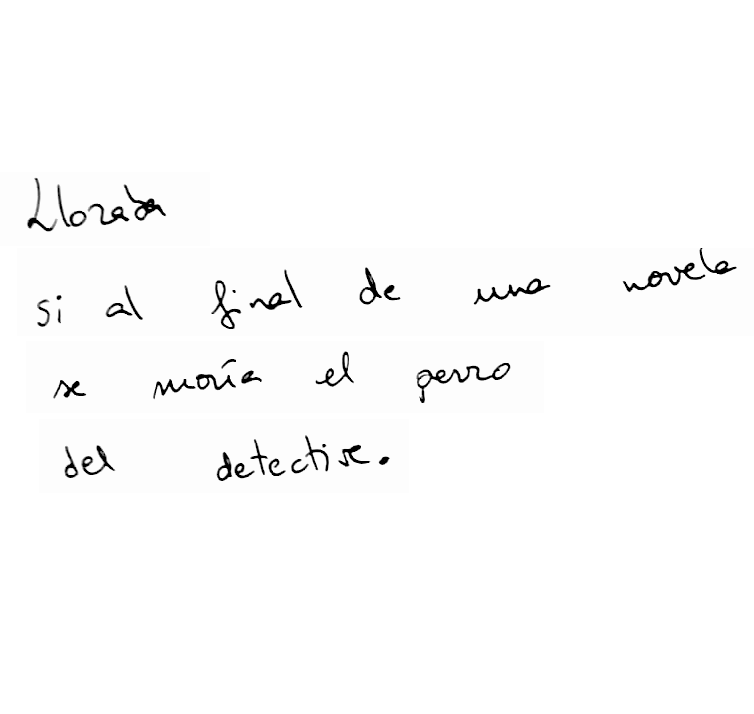 Lloraba
si al final de una novela
se moría el perro
del detective.